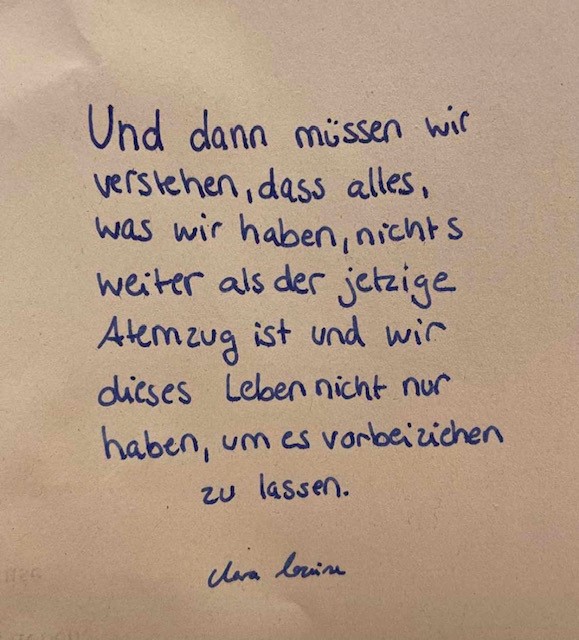 Und dann müssen wir
verstehen, dass alles,
was wir haben, nichts
weiter als der jetzige
Atemzug ist und wir
dieses Leben nicht nur
haben, um es vorbeiziehen
zu lassen.
clara louise